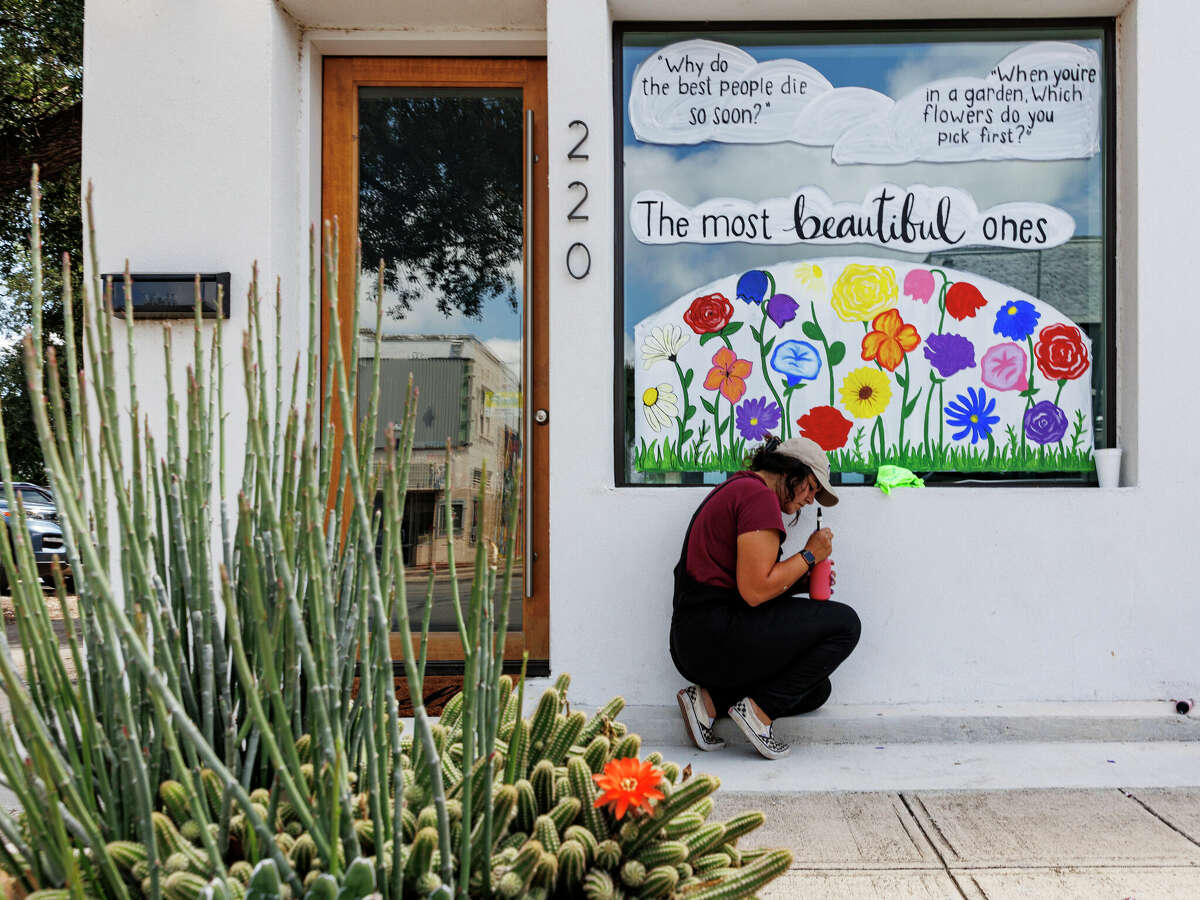 "Why do
the best people die
so soon?"
"When you're
in a garden, Which
flowers do you
pick first?"
The most beautiful ones
2
2
0